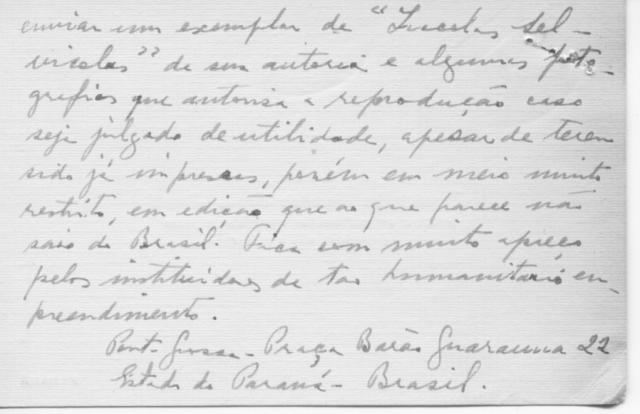 enviar um exemplar de "Lucolas sel-
vicolas" de sua autoria e algumas foto-
grafias que autorisa a reprodução caso
seja julgado de utilidade, apesar de terem
sido já impressas, porém em meio muito
restrito, em edição que ao que parece não
saio do Brasil. Fica com muito apreço
pelos instituidores de tao humanitario em-
preendimento.
Pont. Grossa - Praça Barão Guarauna 22
Estado do Paraná - Brasil.